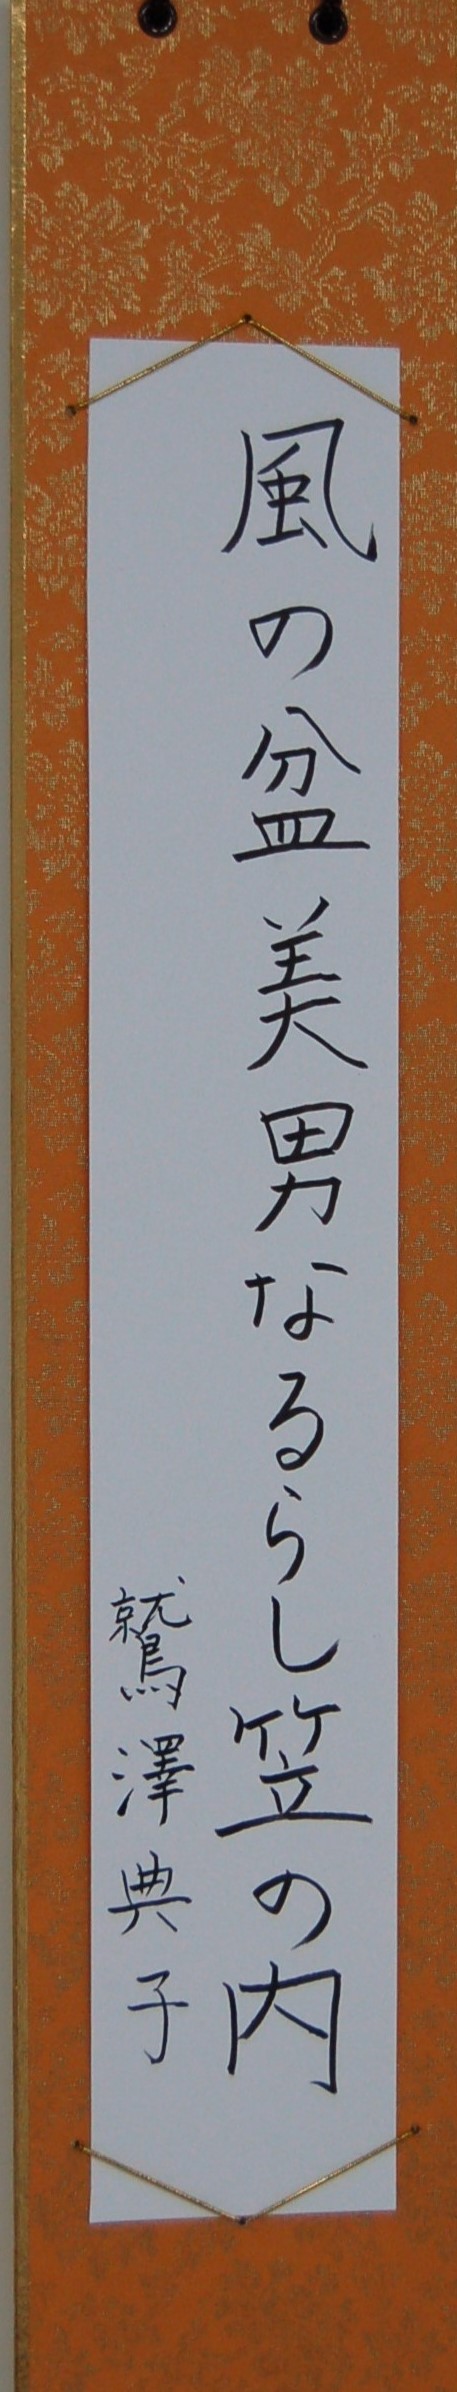 風の盆美男なるらし笠の内
鷲澤典子